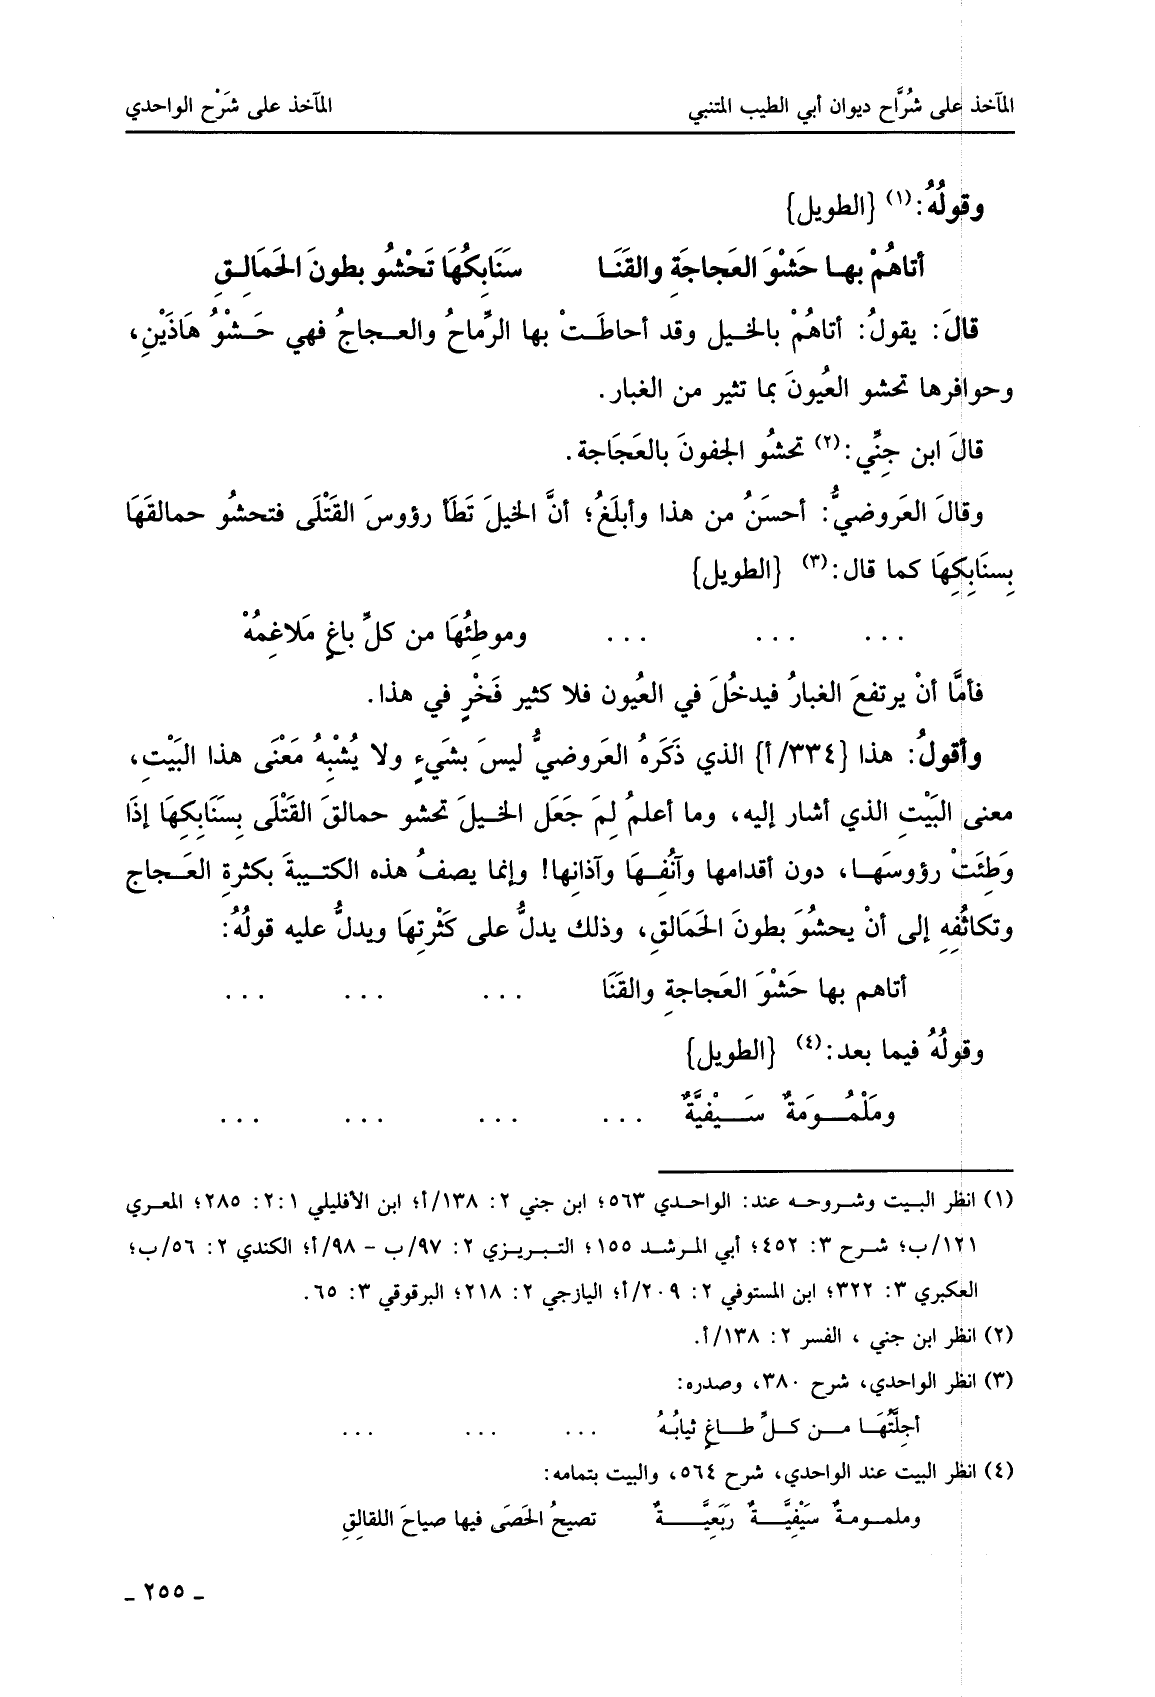 المآخذ على شُرَّاح ديوان أبي الطيب المتنبي المآخذ على شَرْح الواحدي
وقولُهُ:(١) {الطويل}
أتاهُمْ بها حَشْوَ العَجاجَةِ والقَنَا سَنَابِكُهَا تَحْشُو بطونَ الحَمَالِقِ
قالَ: يقولُ: أتاهُمْ بالخيل وقد أحاطَتْ بها الرِّماحُ والعجاجُ فهي حَشْوُ هَاذَيْنِ،
وحوافرها تحشو العيُونَ بما تثير من الغبار.
قالَ ابن جِنِّي:(٢) تحشُو الجفونَ بالعَجَاجة.
وقالَ العَروضيُّ: أحسَنُ من هذا وأبلَغُ؛ أنَّ الخيلَ تَطَأ رؤوسَ القَتْلَى فتحشُو حمالقَهَا
بِسنَابِكِهَا كما قال:(٣) {الطويل}
... ... ... وموطِئُهَا من كلِّ باغٍ مَلاغِمُهْ
فأمَّا أنْ يرتفعَ الغبارُ فيدخُلَ في العيُون فلا كثير فَخْرٍ في هذا.
وأقولُ: هذا {٣٣٤/أ} الذي ذَكَرهُ العَروضيُّ ليسَ بشَيءٍ ولا يُشْبِهُ مَعْنَى هذا البَيْتِ،
معنى البَيْتِ الذي أشار إليه، وما أعلمُ لِمَ جَعَل الخيلَ تحشو حمالقَ القَتْلَى بِسَنَابِكِهَا إذَا
وَطِئَتْ رؤوسَها، دون أقدامها وآنُفِهَا وآذانِها! وإنما يصفُ هذه الكتيبةَ بكثرةِ العَجاج
وتكاثُفِهِ إلى أنْ يحشُوَ بطونَ الحَمَالقِ، وذلك يدلُّ على كَثْرتِهَا ويدلُّ عليه قولُهُ:
أتاهم بها حَشْوَ العَجاجةِ والقَنَا ... ... ...
وقولُهُ فيما بعد:(٤) {الطويل}
ومَلْمُومَةٌ سَيْفِيَّةٌ ... ... ... ...
(١) انظر البيت وشروحه عند: الواحدي ٥٦٣؛ ابن جني ٢: ١٣٨/أ؛ ابن الأفليلي ٢:١: ٢٨٥؛ المعري
١٢١/ب؛ شرح ٣: ٤٥٢؛ أبي المرشد ١٥٥؛ التبريزي ٢: ٩٧/ب - ٩٨/أ؛ الكندي ٢: ٥٦/ب؛
العكبري ٣: ٣٢٢؛ ابن المستوفي ٢: ٢٠٩/أ؛ اليازجي ٢: ٢١٨؛ البرقوقي ٣: ٦٥.
(٢) انظر ابن جني ، الفسر ٢: ١٣٨/أ.
(٣) انظر الواحدي، شرح ٣٨٠، وصدره:
أجِلَّتُهَا من كلِّ طاغٍ ثيابُهُ ... ... ...
(٤) انظر البيت عند الواحدي، شرح ٥٦٤، والبيت بتمامه:
وملمومةٌ سَيْفِيَّةٌ رَبَعِيَّةٌ تصيحُ الحَصَى فيها صياحَ اللقالِقِ
ـ ٢٥٥ ـ